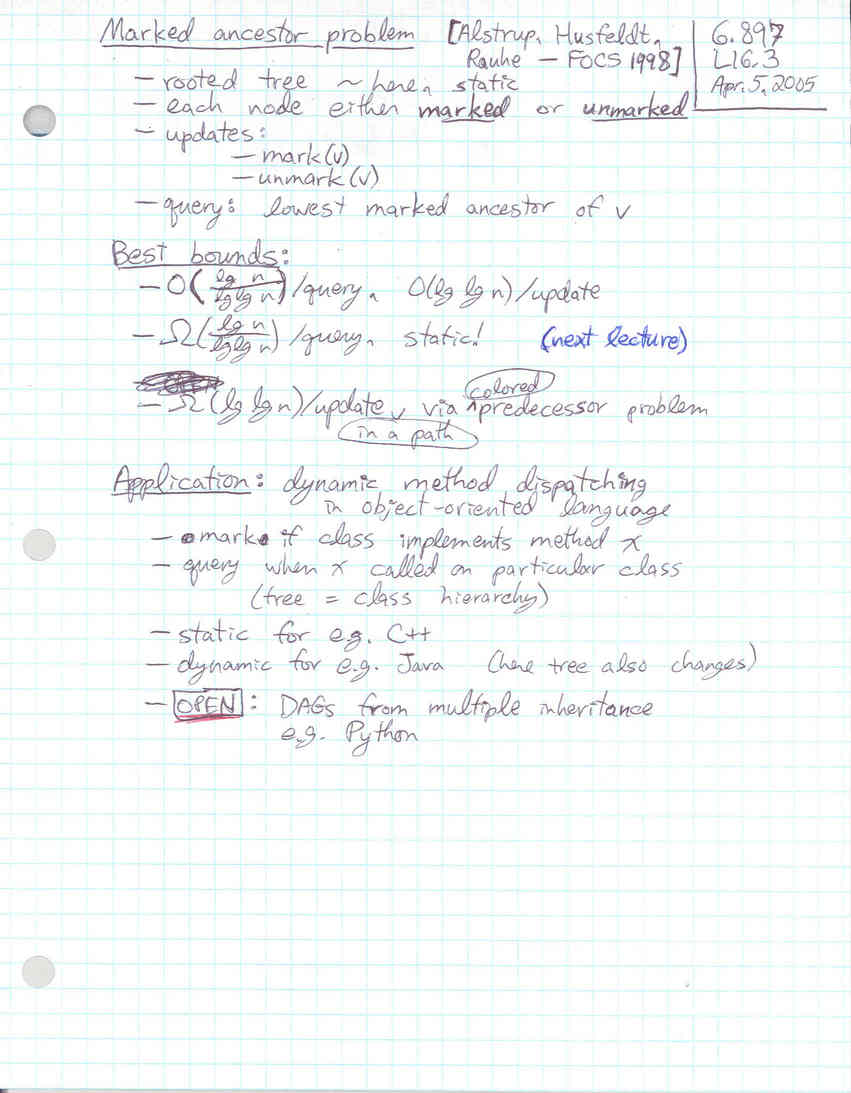 Marked ancestor problem [Alstrup, Husfeldt,
Rauhe — FOCS 1998]
6.897
L16.3
Apr. 5, 2005
— rooted tree ~ here, static
— each node either marked or unmarked
— updates:
— mark(v)
— unmark(v)
— query: lowest marked ancestor of v
Best bounds:
— O(lg n / lg lg n)/query, O(lg lg n)/update
— Ω(lg n / lg lg n)/query, static! (next lecture)
— Ω(lg lg n)/update in a path, via colored predecessor problem
Application: dynamic method dispatching
in object-oriented language
— mark if class implements method x
— query when x called on particular class
(tree = class hierarchy)
— static for e.g. C++
— dynamic for e.g. Java (here tree also changes)
— OPEN: DAGs from multiple inheritance
e.g. Python